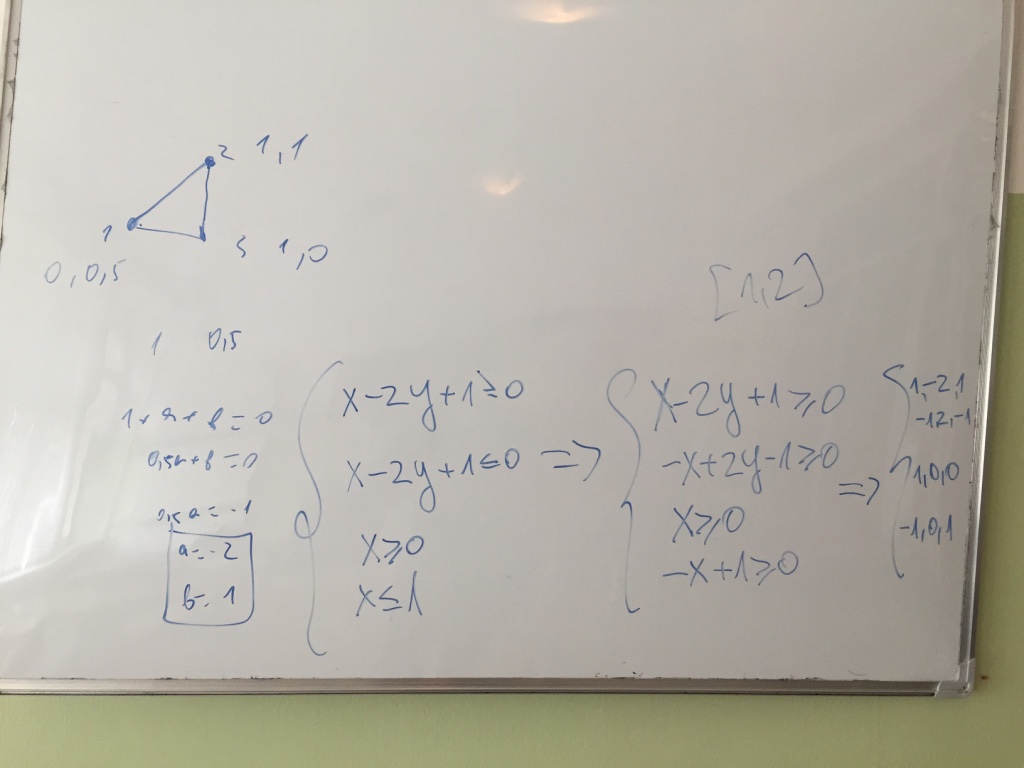 2 1,1
1
3 1,0
0,0,5
[1,2]
1 0,5
1+a+b=0
0,5a+b=0
0,5a=-1
a=-2
b=1
x-2y+1≥0
x-2y+1≤0
x≥0
x≤1
=>
x-2y+1≥0
-x+2y-1≥0
x≥0
-x+1≥0
=>
1,-2,1
-12,-1
1,0,0
-1,0,1